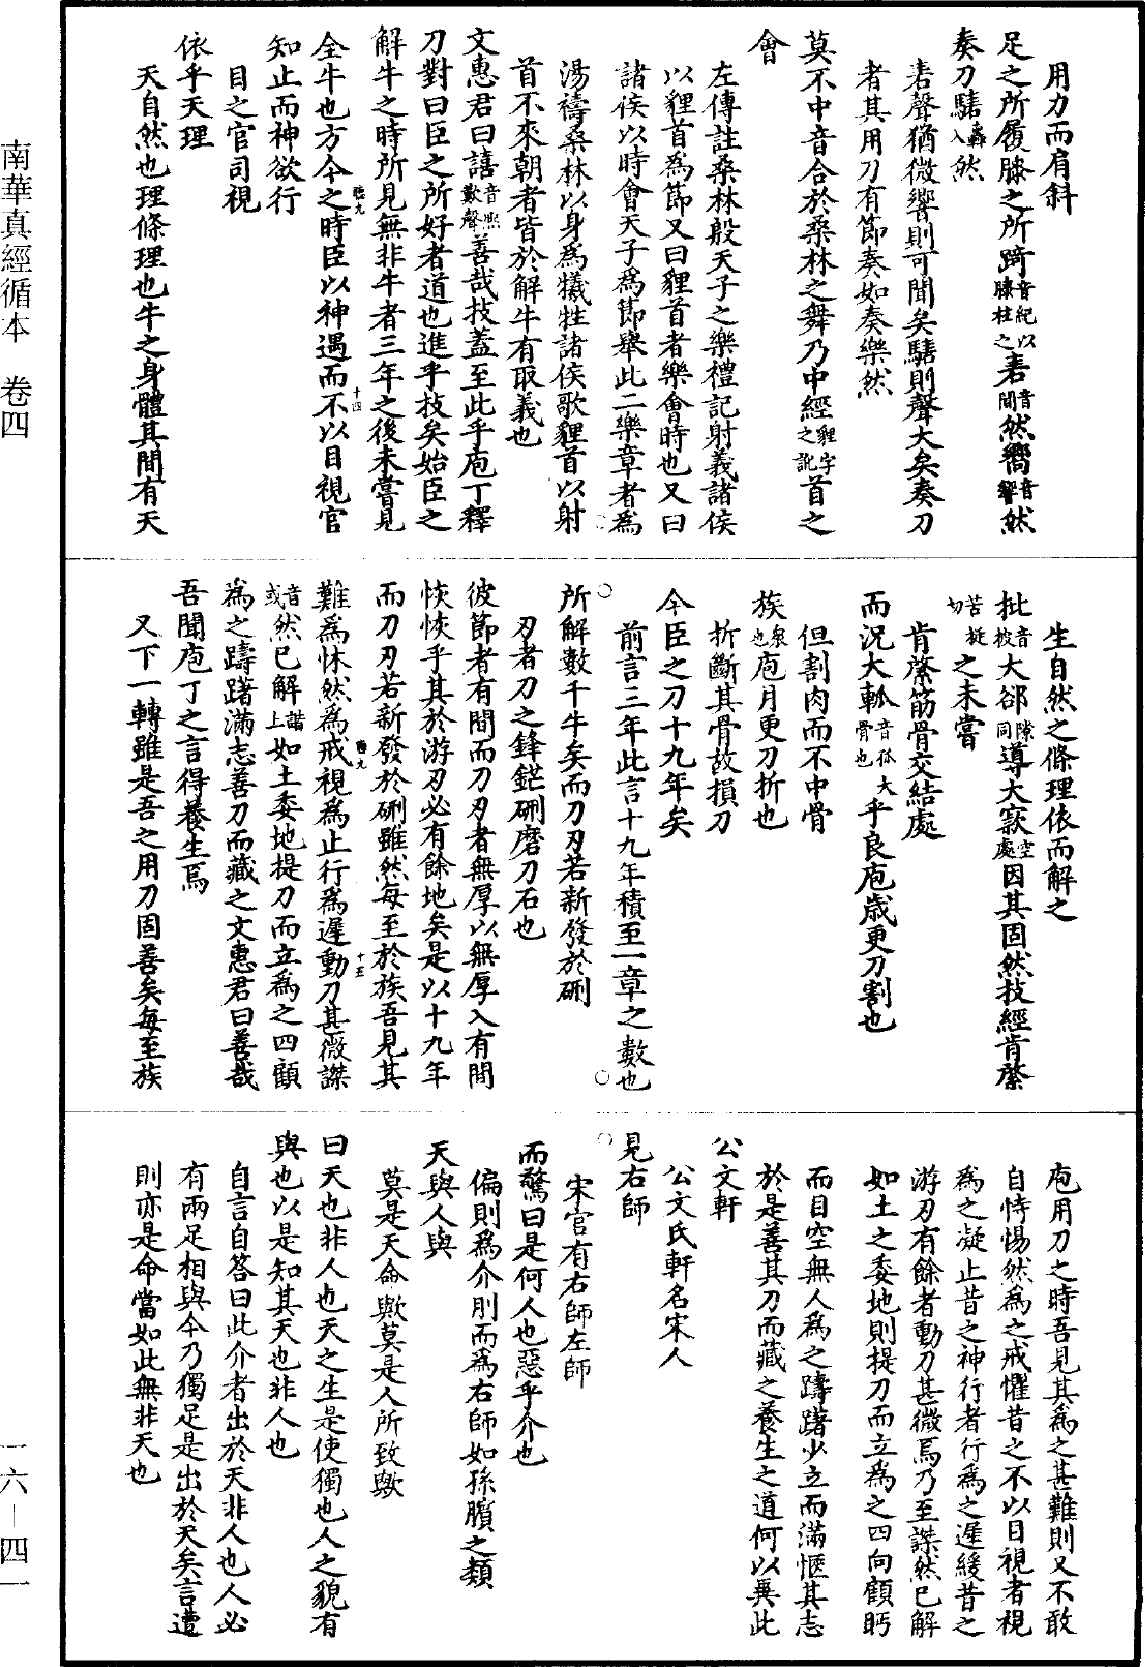 用力而肩斜
足之所履膝之所踦音紀以膝柱之砉音閴然嚮音響然
奏刀騞轟入然
砉聲猶微響則可聞矣騞則聲大矣奏刀
者其用刀有節奏如奏樂然
莫不中音合於桑林之舞乃中經貍字之訛首之
會
左傳註桑林般天子之樂禮記射義諸侯
以貍首為節又曰貍首者樂會時也又曰
諸侯以時會天子為節舉此二樂章者為
湯禱桑林以身為犧牲諸侯歌貍首以射
首不來朝者皆於解牛有取義也
文惠君曰譆音熙歎聲善哉技蓋至此乎庖丁釋
刀對曰臣之所好者道也進乎技矣始臣之
解牛之時所見無非牛者三年之後未嘗見
全牛也方今之時臣以神遇而不以目視官
知止而神欲行
目之官司視
依乎天理
天自然也理條理也牛之身體其間有天
生自然之條理依而解之
批音披大郤隙同導大窾空處因其固然技經肯綮
苦挺切之未嘗
肯綮筋骨交結處
而況大軱音孤大骨也乎良庖歲更刀割也
但割肉而不中骨
族衆也庖月更刀折也
折斷其骨故損刀
今臣之刀十九年矣
前言三年此言十九年積至一章之數也
所解數千牛矣而刀刃若新發於硎
刃者刀之鋒鋩硎磨刀石也
彼節者有間而刀刃者無厚以無厚入有間
恢恢乎其於游刃必有餘地矣是以十九年
而刀刃若新發於硎雖然每至於族吾見其
難為怵然為戒視為止行為遲動刀甚微謋
音或然已解諧上如土委地提刀而立為之四顧
為之躊躇滿志善刀而藏之文惠君曰善哉
吾聞庖丁之言得養生焉
又下一轉雖是吾之用刀固善矣每至族
庖用刀之時吾見其為之甚難則又不敢
自恃惕然為之戒懼昔之不以目視者視
為之凝止昔之神行者行為之遲緩昔之
游刃有餘者動刀甚微焉乃至謋然已解
如土之委地則提刀而立為之四向顧眄
而目空無人為之躊躇少立而滿愜其志
於是善其刀而藏之養生之道何以異此
公文軒
公文氏軒名宋人
見右師
宋官有右師左師
而驚曰是何人也惡乎介也
偏則為介刖而為右師如孫臏之類
天與人與
莫是天命歟莫是人所致歟
曰天也非人也天之生是使獨也人之貌有
與也以是知其天也非人也
自言自答曰此介者出於天非人也人必
有兩足相與今乃獨足是出於天矣言遭
則亦是命當如此無非天也
南華真經循本　卷四
一六—四一